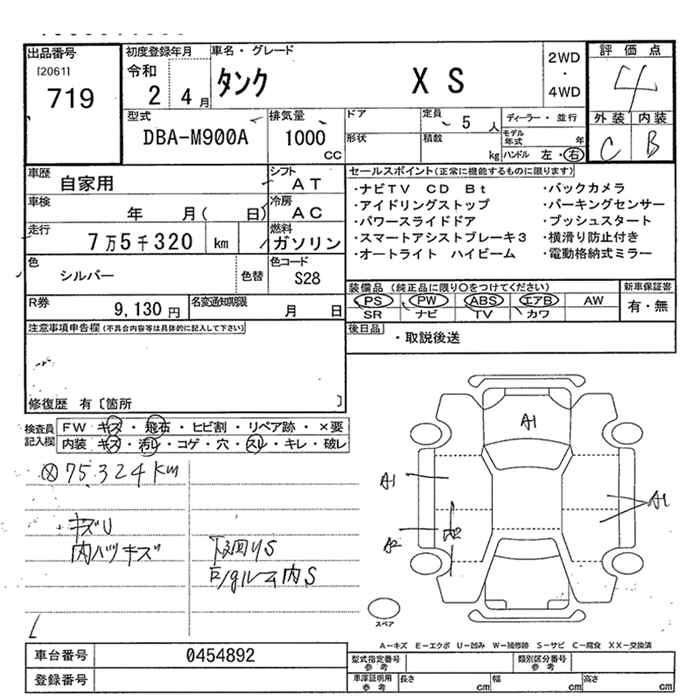 出品番号
[2061]
719
初度登録年月
令和
2 4月
車名・グレード
タンク XS
2WD
・
4WD
評価点
4
外装 内装
C B
型式
DBA-M900A
排気量
1000
CC
ドア
形状
定員
5 人
積数
kg
ディーラー・並行
モデル
年式 年
ハンドル 左・右
車歴
自家用
シフト
AT
車検
年 月( 日)
冷房
AC
走行
7万5千320 km
燃料
ガソリン
色
シルバー
色替
色コード
S28
R券
9,130円
名変通知期限
月 日
セールスポイント(正常に機能するものに限り)
・ナビTV CD Bt ・バックカメラ
・アイドリングストップ ・パーキングセンサー
・パワースライドドア ・プッシュスタート
・スマートアシストブレーキ3 ・横滑り防止付き
・オートライト ハイビーム ・電動格納式ミラー
装備品(純正品に限り○をつけてください)
新車保証書
PS PW ABS エアB AW
SR ナビ TV カワ
有・無
後日品
・取説後送
注意事項申告欄(不具合内容等は具体的に記入して下さい)
修復歴 有〔箇所 〕
検査員
記入欄
FW キズ・飛石・ヒビ割・リペア跡・×要
内装 キズ・汚レ・コゲ・穴・スレ・キレ・破レ
75.324km
キズU
内ハツキズ
下廻りS
内S
A1
A1
A1
A2
A2
スペア
A-キズ E-エクボ U-凹み W-補修跡 S-サビ C-腐食 XX-交換済
車台番号
0454892
登録番号
型式指定番号
参考
類別区分番号
参考
車庫証明用
参考
長さ cm 幅 cm 高さ cm